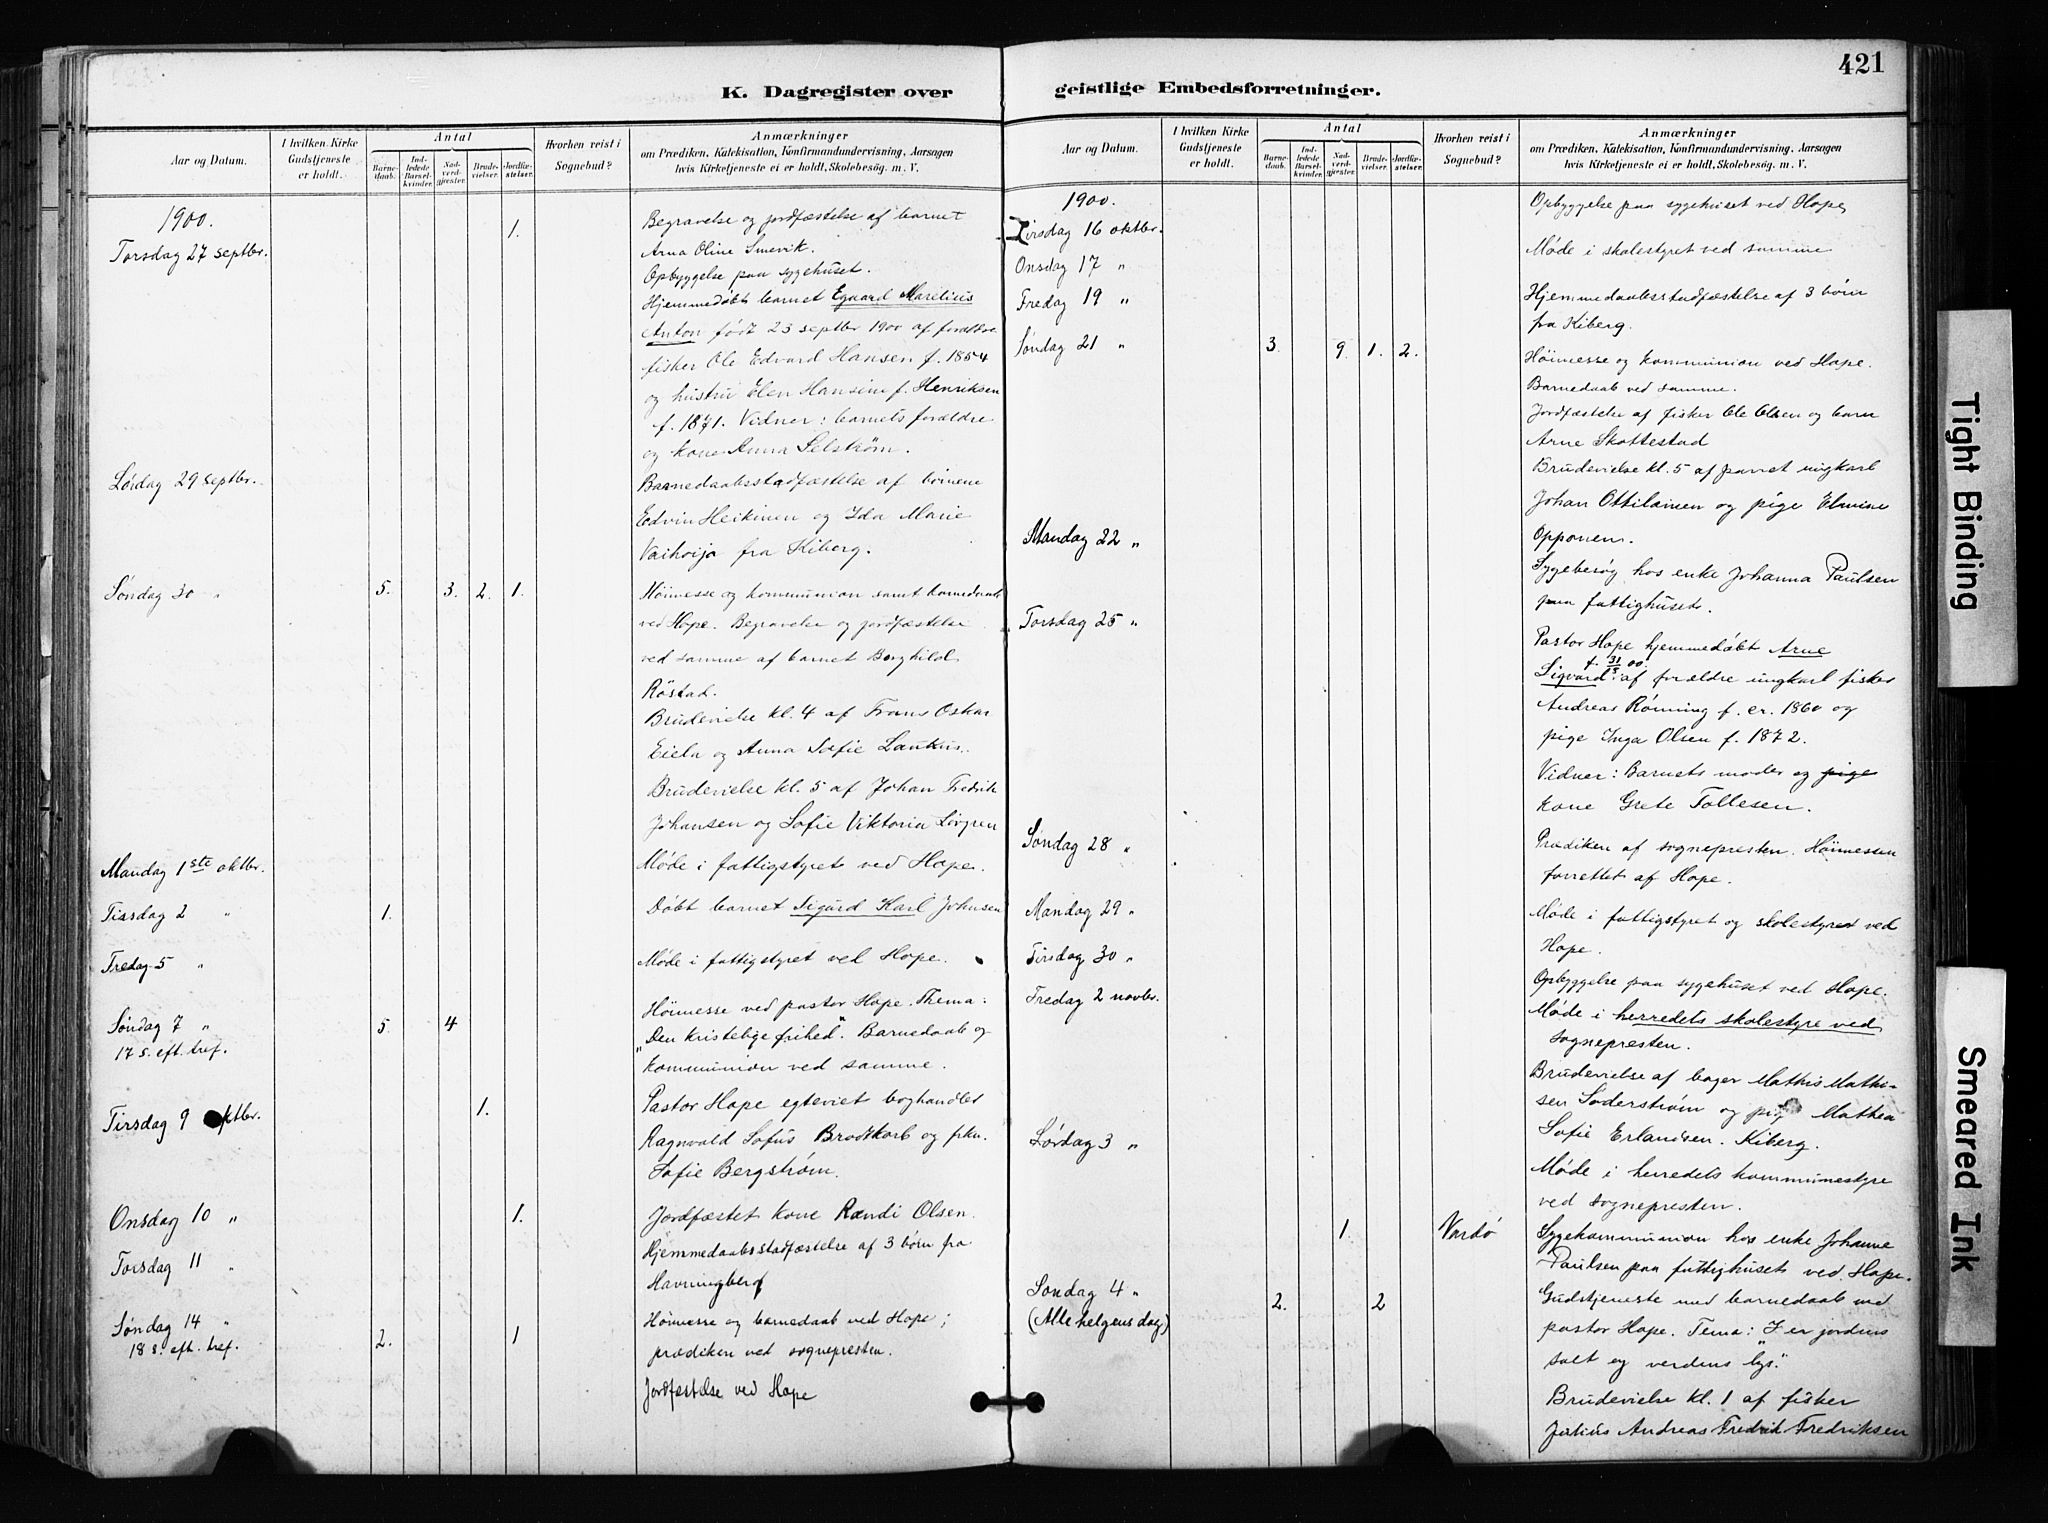 421
K. Dagregister over
geistlige Embedsforretninger.
Aar og Datum.
I hvilken Kirke Gudstjeneste er holdt.
Antal
Barnedaab.
Indledede Barselkvinder.
Nadverdgjester.
Brudevielser.
Jordfæstelser.
Hvorhen reist i Sognebud?
Anmærkninger
om Prædiken, Katekisation, Konfirmandundervisning, Aarsagen
hvis Kirketjeneste ei er holdt, Skolebesøg. m. V.
1900.
Torsdag 27 septbr. 1.
Begravelse og jordfæstelse af barnet
Arna Oline Smevik.
Opbyggelse paa sygehuset.
Hjemmedøbt barnet Edvard Marelius
Anton født 23 septbr 1900 af forældre
fisker Ole Edvard Hansen f. 1854
og hustru Elen Hansine f. Henriksen
f. 1871. Vidner: barnets forældre
og kone Anna Selstrøm.
Lørdag 29 septbr.
Barnedaabsstadfæstelse af børnene
Edvin Heikinen og Ida Marie
Vaihoija fra Kiberg.
Søndag 30 " 5. 3. 2. 1.
Høimesse og kommunion samt barnedaab
ved Hope. Begravelse og jordfæstelse
ved samme af barnet Borghild
Røstad.
Brudevielse kl. 4 af Frans Oskar
Eiela og Anna Sofie Laukus.
Brudevielse kl. 5 af Johan Fredrik
Johansen og Sofie Viktoria Løvgren
Mandag 1ste oktbr.
Møde i fattigstyret ved Hope.
Tirsdag 2 " 1.
Døbt barnet Sigurd Karl Johnsen
Fredag 5 "
Møde i fattigstyret ved Hope.
Søndag 7 " 5. 4
17 s. eft. tref.
Høimesse ved pastor Hope. Thema:
"Den kristelige frihed". Barnedaab og
kommunion ved samme.
Tirsdag 9 oktbr. 1.
Pastor Hope egteviet boghandler
Ragnvald Sofus Brodtkorb og frkn.
Sofie Bergstrøm.
Onsdag 10 " 1.
Jordfæstet kone Randi Olsen.
Torsdag 11 "
Hjemmedaabsstadfæstelse af 3 børn fra
Havningberg
Søndag 14 " 2. 1
18 s. eft. tref.
Høimesse og barnedaab ved Hope;
prædiken ved sognepresten.
Jordfæstelse ved Hope
Aar og Datum.
I hvilken Kirke Gudstjeneste er holdt.
Antal
Barnedaab.
Indledede Barselkvinder.
Nadverdgjester.
Brudevielser.
Jordfæstelser.
Hvorhen reist i Sognebud?
Anmærkninger
om Prædiken, Katekisation, Konfirmandundervisning, Aarsagen
hvis Kirketjeneste ei er holdt, Skolebesøg. m. V.
1900.
Tirsdag 16 oktbr.
Opbyggelse paa sygehuset ved Hope,
Onsdag 17 "
Møde i skolestyret ved samme
Fredag 19 "
Hjemmedaabsstadfæstelse af 3 børn
fra Kiberg.
Søndag 21 " 3. 9. 1. 2.
Høimesse og kommunion ved Hope.
Barnedaab ved samme.
Jordfæstelse af fisker Ole Olsen og barn
Arne Skottestad
Brudevielse kl. 5 af parret ungkarl
Johan Ottilainen og pige Elwine
Opponen.
Mandag 22 "
Sygebesøg hos enke Johanna Paulsen
paa fattighuset.
Torsdag 25 "
Pastor Hope hjemmedøbt Arne
Sigvard f. 31/5 00. af forældre ungkarl fisker
Andreas Rønning f. cr. 1860 og
pige Inga Olsen f. 1872.
Vidner: Barnets moder og pige
kone Grete Tollesen.
Søndag 28 "
Prædiken af sognepresten. Høimessen
forrettet af Hope.
Mandag 29 "
Møde i fattigstyret og skolestyret ved
Hope.
Tirsdag 30 "
Opbyggelse paa sygehuset ved Hope.
Fredag 2 novbr.
Møde i herredets skolestyre ved
sognepresten.
Brudevielse af bager Mathis Mathisen
Søderstrøm og pige Mathea
Sofie Erlandsen. Kiberg.
Lørdag 3 "
Møde i herredets kommunestyre
ved sognepresten.
1. Vardø
Sygekommunion hos enke Johanne
Paulsen paa fattighuset ved Hope.
Søndag 4 " 2. 2
(Alle helgens dag)
Gudstjeneste med barnedaab ved
pastor Hope. Tema: "I er jordens
salt og verdens lys".
Brudevielse kl. 1 af fisker
Julius Andreas Fredrik Fredriksen
Tight Binding
Smeared Ink